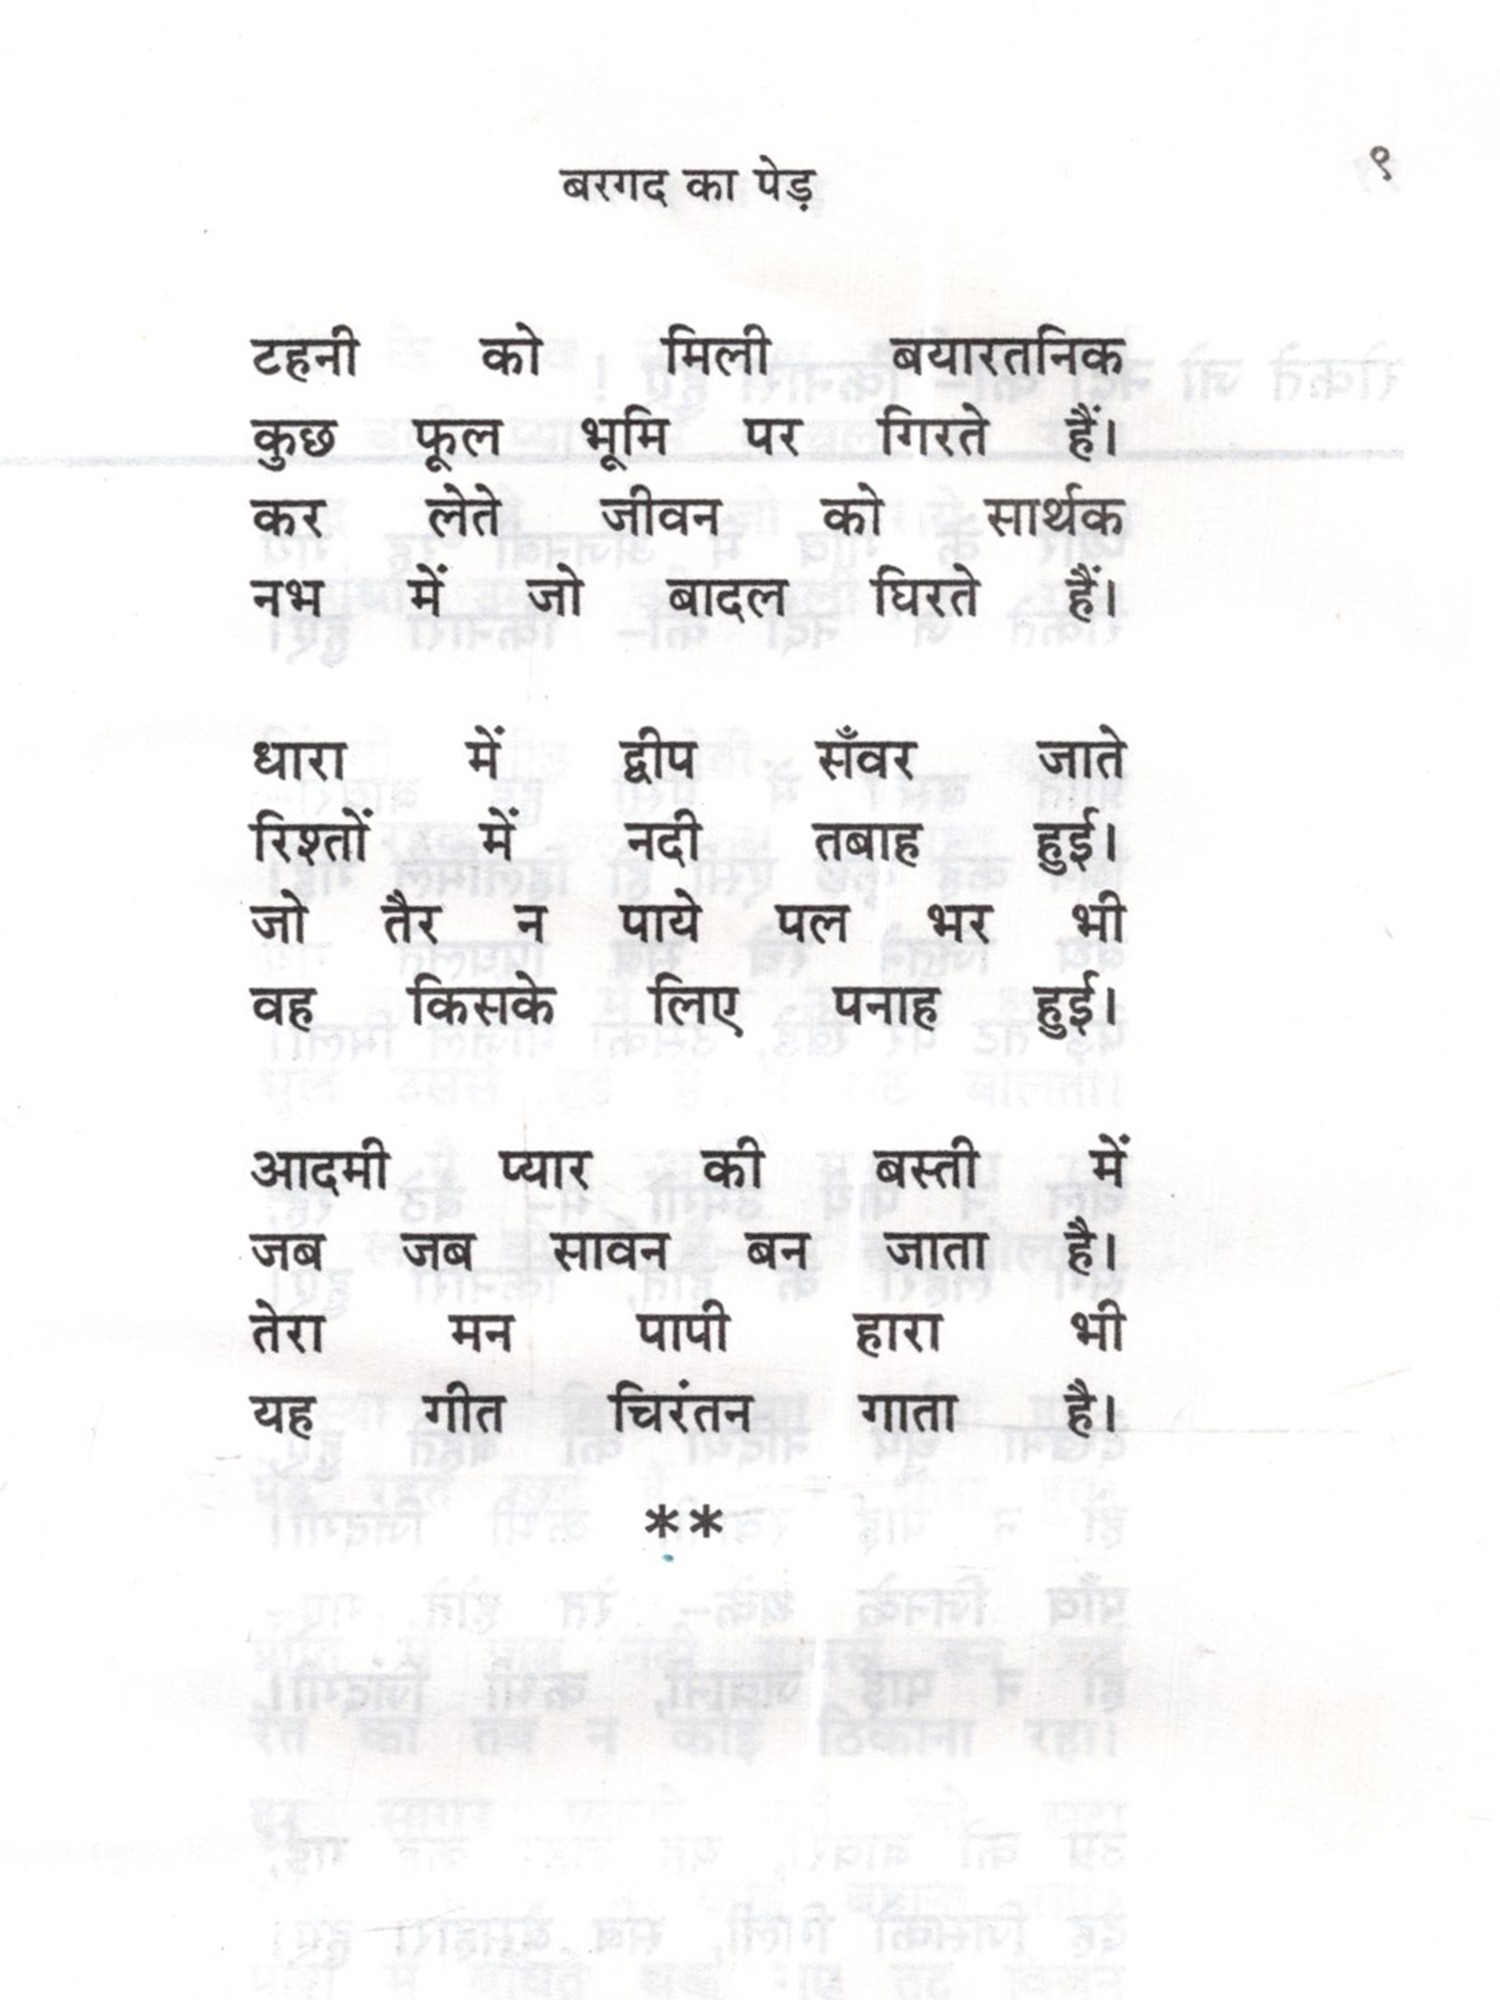 बरगद का पेड़
९
टहनी को मिली बयारतनिक
कुछ फूल भूमि पर गिरते हैं।
कर लेते जीवन को सार्थक
नभ में जो बादल घिरते हैं।
धारा में द्वीप सँवर जाते
रिश्तों में नदी तबाह हुई।
जो तैर न पाये पल भर भी
वह किसके लिए पनाह हुई।
आदमी प्यार की बस्ती में
जब जब सावन बन जाता है।
तेरा मन पापी हारा भी
यह गीत चिरंतन गाता है।
**